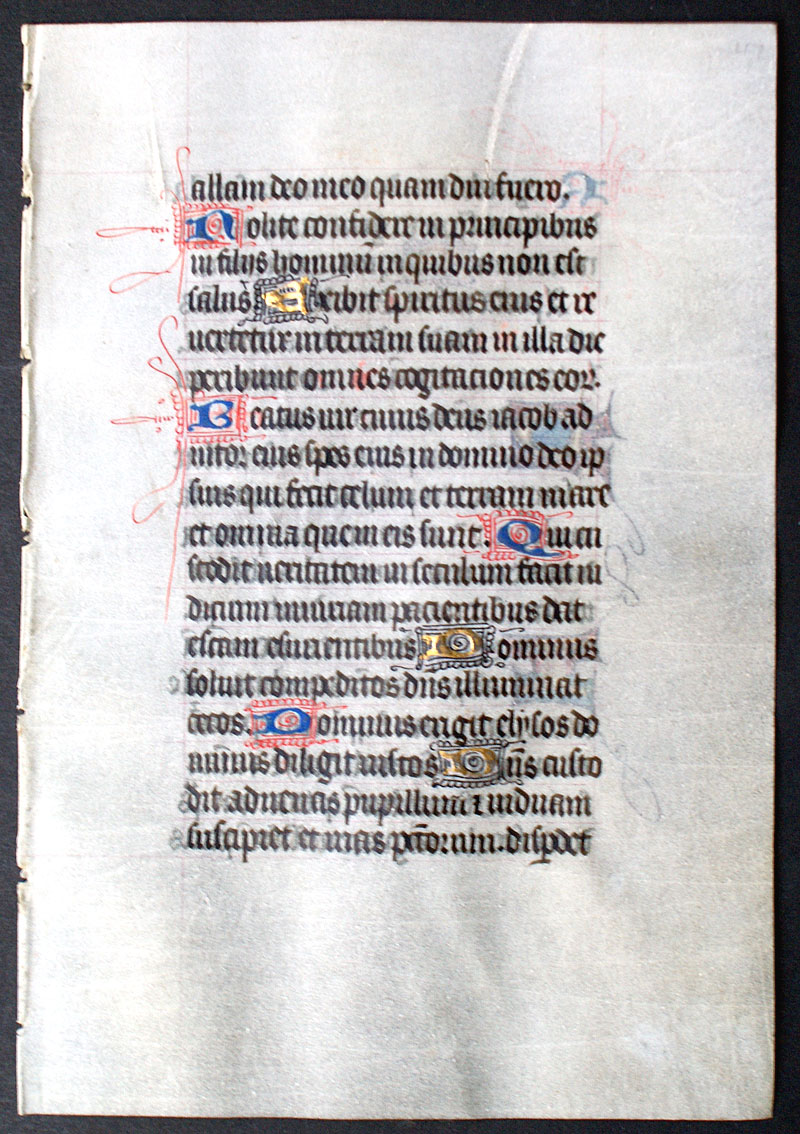 allam deo meo quam diu fuero.
Nolite confidere in principibus
in filijs hominū in quibus non est
salus Exibit spiritus eius et re
uertetur in terram suam in illa die
peribunt omnes cogitaciones eor.
Beatus uir cuius deus iacob ad
iutor eius spes eius in domino deo ip
suis qui fecit celum et terram mare
et omnia que in eis sunt. Qui cu
stodit ueritatem in seculum facit iu
dicium iniuriam pacientibus dat
escam esurientibus Dominus
soluit compeditos dn̄s illuminat
cecos. Dominus erigit elysos do
minus diligit iustos Dn̄s custo
dit aduenas pupillum ⁊ uiduam
suscipiet et uias pc̄torum. disperdet